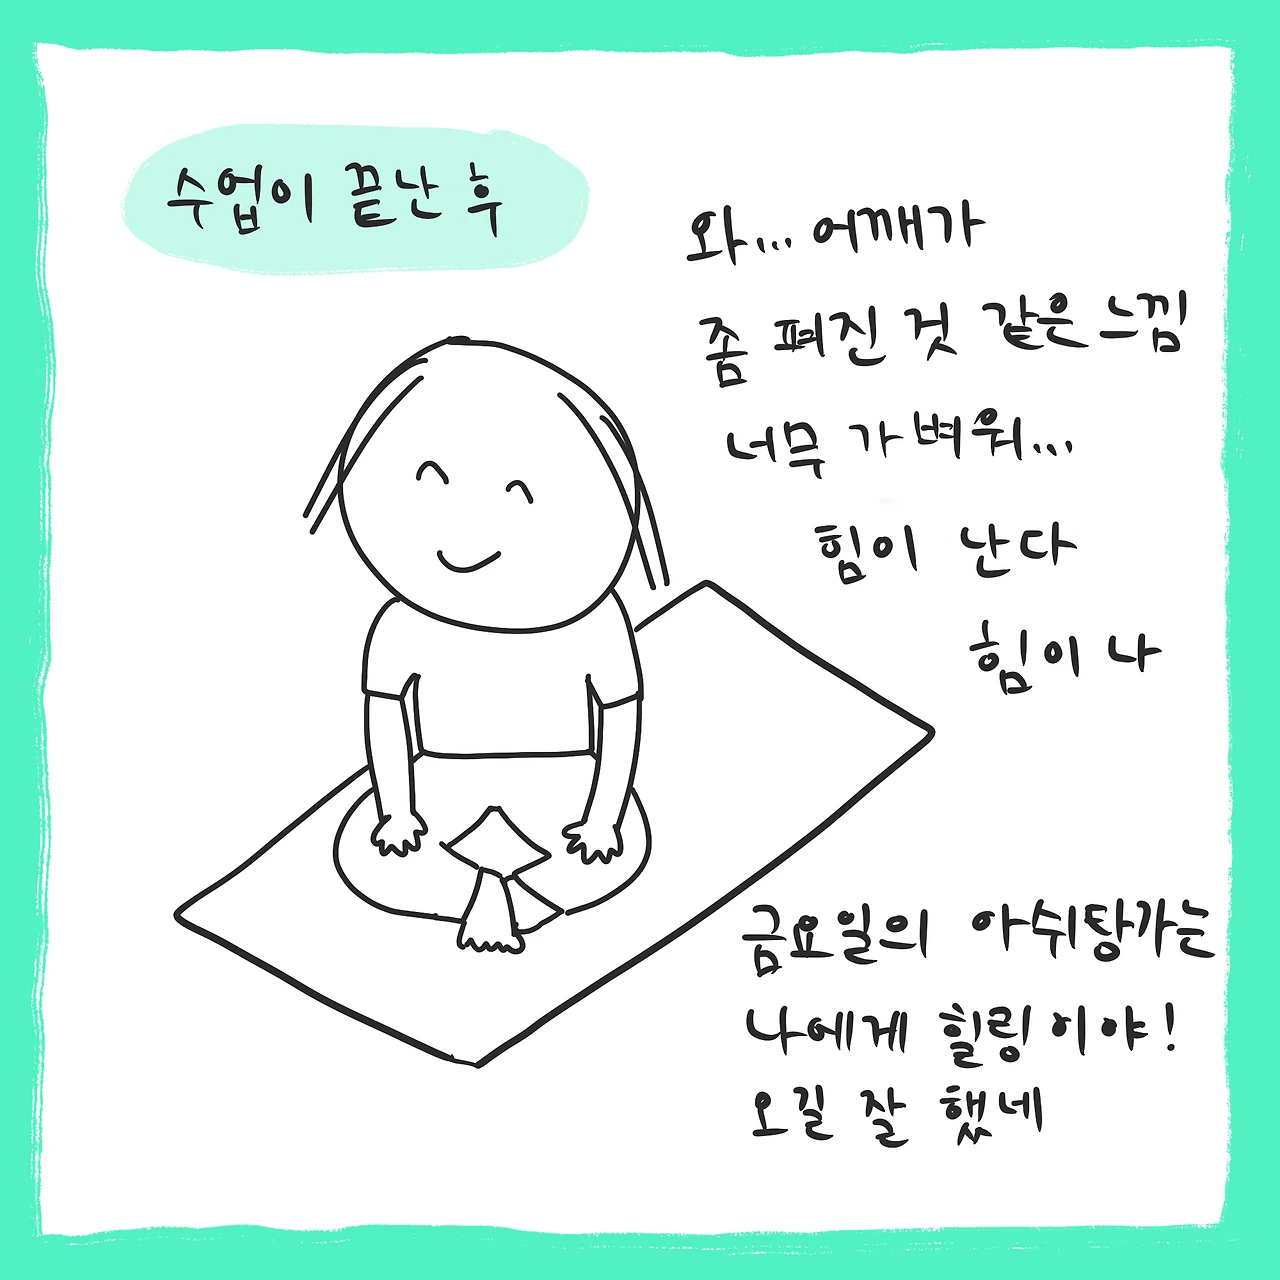 수업이 끝난 후
와... 어깨가
좀 펴진 것 같은 느낌
너무 가벼워...
힘이 난다
힘이 나
금요일의 아쉬탕가는
나에게 힐링이야!
오길 잘 했네